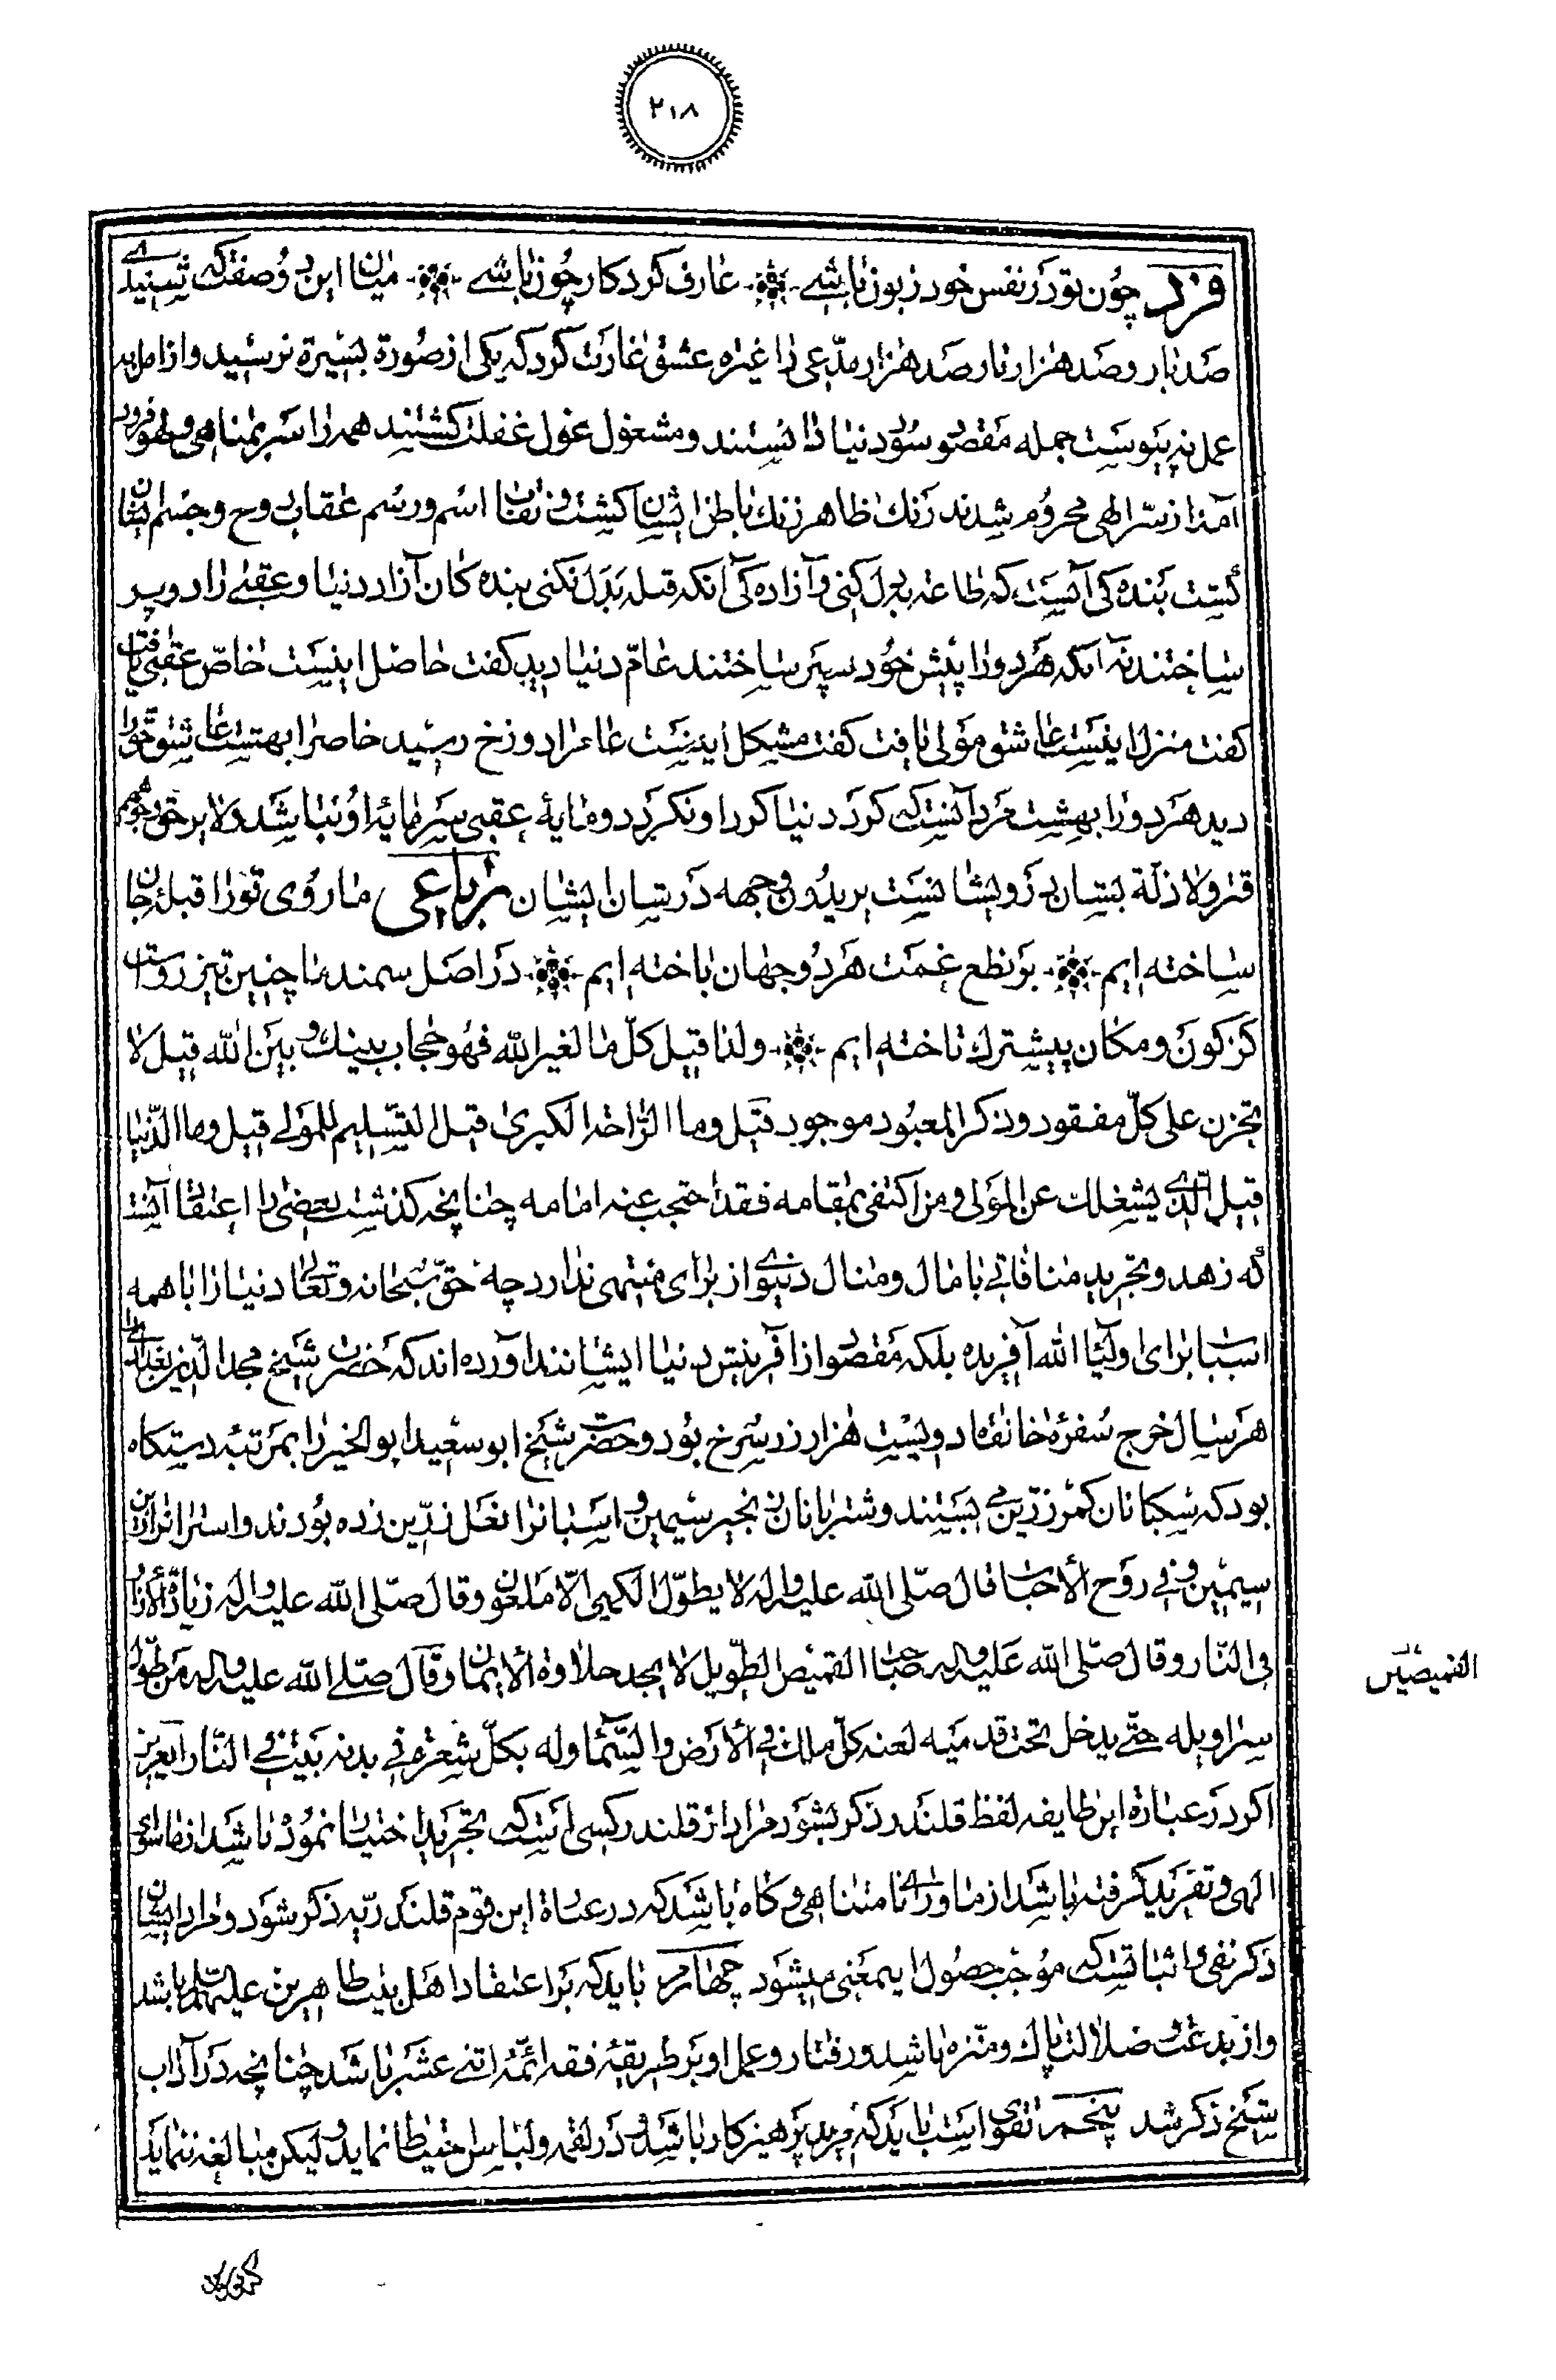 ۲۱۸
فرد چون تو در نفس خود زبون باشی عارف کردکار چون باشی میان این دو صفت که شنیدی
صد بار و صد هزار بار صد هزار مدعی را غیره عشق غارت کرد که یکی از صورة بسیرة نرسید و از امل به
عمل نه پیوست جمله مقصود سود دنیا دانستند و مشغول غول غفلت کشتند همه را سر بمناهی و ملاهی فرود
آمد از سر الهی محروم شدند زنك ظاهر زنك باطن ایشان کشت و نقاب اسم و رسم عقاب روح و جسم ایشان
بنده کی آنست که طاعة بدل کنی و آزاده کی آنکه قبله بدل نکنی بنده کان آزاد دنیا و عقبی را دو پر
ساختند نه آنکه هر دو را پیش خود سپر ساختند عام دنیا دید کفت حاصل اینست خاص عقبی یافت
کفت منزل اینست عاشق مولی یافت کفت مشکل اینست عام را دوزخ رسید خاص را بهشت عاشق خود را
دید هر دو را بهشت مرد آنست که کرد دنیا کردد و نکردد و مایهٔ عقبی سرمایهٔ او نباشد ولا یرهق وجوههم
قتر ولا ذلة بستان روی ایشانست یریدون وجهه در شان ایشان رباعی ما روی تو را قبلهٔ جان
ساخته ایم بر نطع غمت هر دو جهان باخته ایم در اصل سمند ما چنین تیز رو است
کز کون و مکان پیشترك تاخته ایم ولذا قیل کل ما لغیر الله فهو حجاب بینك و بین الله قیل لا
تحزن علی کل مفقود وذکر المعبود موجود قیل وما الراحة الکبری قیل التسلیم للمولی قیل وما الدنیا
قیل الذی یشغلك عن المولی ومن اکتفی بمقامه فقد احتجب عنه امامه چنانچه کذشت بعضی را اعتقاد آنست
که زهد و تجرید منافاتی با مال و منال دنیوی از برای منتهی ندارد چه حق سبحانه و تعالی دنیا را با همه
اسباب برای اولیاء الله آفریده بلکه مقصود از آفرینش دنیا ایشانند آورده اند که حضرت شیخ مجد الدین بغدادی را
هر سال خرج سفرهٔ خانقاه دویست هزار زر سرخ بود و حضرت شیخ ابو سعید ابو الخیر را بمرتبه دستکاه
بود که سکبانان کمر زرین می بستند و شتربانان زنجیر سیمین و اسبانرا نعل زرین زده بودند و استرانرا
سیمین و فی روح الاحباب قال صلی الله علیه واله لا یطول الکمی الا ملعون وقال صلی الله علیه واله زیادة الازار
فی النار وقال صلی الله علیه واله صاحب القمیص الطویل لا یجد حلاوة الایمان وقال صلی الله علیه واله من طول
سراویله حتی یدخل تحت قدمیه لعنه کل ملك فی الارض والسماء وله بکل شعرة فی بدنه بیت فی النار
اکر در عبارة این طایفه لفظ قلندر ذکر بشود مراد از قلندر کسی است که تجرید اختیار نموده باشد از ماسوی
الهی و تفرید کرفته باشد از ماورای نامتناهی و کاه باشد که در عبارة این قوم قلندریه ذکر شود و مراد ایشان
ذکر نفی و اثباتست که موجب حصول ایمعنی میشود چهارم باید که بر اعتقاد اهل بیت طاهرین علیهم السلام باشد
و از بدعت و ضلالت پاك و منزه باشد و رفتار و عمل او بر طریقهٔ فقه ائمه اثنی عشر باشد چنانچه در آداب
شیخ ذکر شد پنجم تقوی است باید که مرید پرهیزکار باشد و در لقمه و لباس احتیاط نماید ولیکن مبالغه ننماید
القمیصین